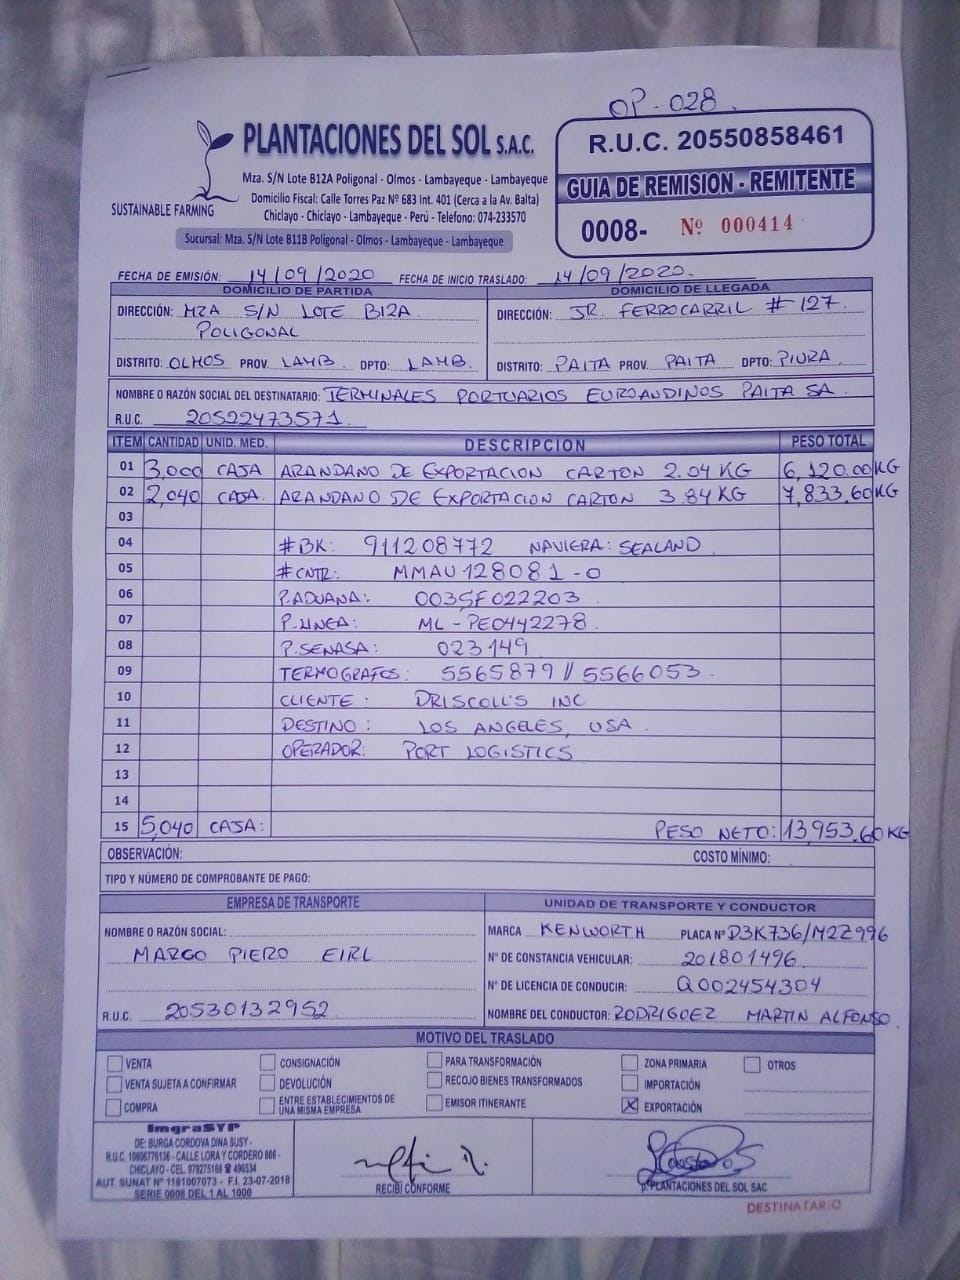 OP-028.
PLANTACIONES DEL SOL S.A.C.
Mza. S/N Lote B12A Poligonal - Olmos - Lambayeque - Lambayeque
Domicilio Fiscal: Calle Torres Paz Nº 683 Int. 401 (Cerca a la Av. Balta)
Chiclayo - Chiclayo - Lambayeque - Perú - Telefono: 074-233570
SUSTAINABLE FARMING
Sucursal: Mza. S/N Lote B11B Poligonal - Olmos - Lambayeque - Lambayeque
R.U.C. 20550858461
GUIA DE REMISION - REMITENTE
0008- Nº 000414
FECHA DE EMISIÓN: 14/09/2020 FECHA DE INICIO TRASLADO: 14/09/2020.
DOMICILIO DE PARTIDA
DIRECCIÓN: MZA S/N LOTE B12A
POLIGONAL
DISTRITO: OLMOS PROV. LAMB. DPTO: LAMB.
DOMICILIO DE LLEGADA
DIRECCIÓN: JR. FERROCARRIL # 127.
DISTRITO: PAITA PROV. PAITA DPTO: PIURA
NOMBRE O RAZÓN SOCIAL DEL DESTINATARIO: TERMINALES PORTUARIOS EUROANDINOS PAITA SA.
R.U.C. 20522473571.
ITEM CANTIDAD UNID. MED. DESCRIPCION PESO TOTAL
01 3,000 CAJA ARANDANO DE EXPORTACION CARTON 2.04 KG 6,120.00 KG
02 2,040 CAJA. ARANDANO DE EXPORTACION CARTON 3.84 KG 7,833.60 KG
03
04 #BK: 911208772 NAVIERA: SEALAND
05 #CNTR: MMAU128081-0
06 P.ADUANA: 003SF022203
07 P.LINEA: ML-PE0442278.
08 P.SENASA: 023149
09 TERMOGRAFOS: 5565879 // 5566053.
10 CLIENTE: DRISCOLL'S INC
11 DESTINO: LOS ANGELES, USA.
12 OPERADOR: PORT LOGISTICS
13
14
15 5,040 CAJA: PESO NETO: 13,953.60 KG
OBSERVACIÓN: COSTO MÍNIMO:
TIPO Y NÚMERO DE COMPROBANTE DE PAGO:
EMPRESA DE TRANSPORTE
NOMBRE O RAZÓN SOCIAL:
MARGO PIERO EIRL
R.U.C. 20530132952
UNIDAD DE TRANSPORTE Y CONDUCTOR
MARCA KENWORTH PLACA Nº D3K736/M2Z996
N° DE CONSTANCIA VEHICULAR: 201801496
N° DE LICENCIA DE CONDUCIR: Q002454304
NOMBRE DEL CONDUCTOR: RODRIGUEZ MARTIN ALFONSO.
MOTIVO DEL TRASLADO
VENTA CONSIGNACIÓN PARA TRANSFORMACIÓN ZONA PRIMARIA OTROS
VENTA SUJETA A CONFIRMAR DEVOLUCIÓN RECOJO BIENES TRANSFORMADOS IMPORTACIÓN
COMPRA ENTRE ESTABLECIMIENTOS DE UNA MISMA EMPRESA EMISOR ITINERANTE X EXPORTACIÓN
ImgraSYP
DE: BURGA CORDOVA DINA SUSY -
R.U.C. 10806776136 - CALLE LORA Y CORDERO 806 -
CHICLAYO - CEL. 979275166 ☎ 496534
AUT. SUNAT Nº 1181007073 - F.I. 23-07-2018
SERIE 0008 DEL 1 AL 1000
RECIBÍ CONFORME
p. PLANTACIONES DEL SOL SAC
DESTINATARIO